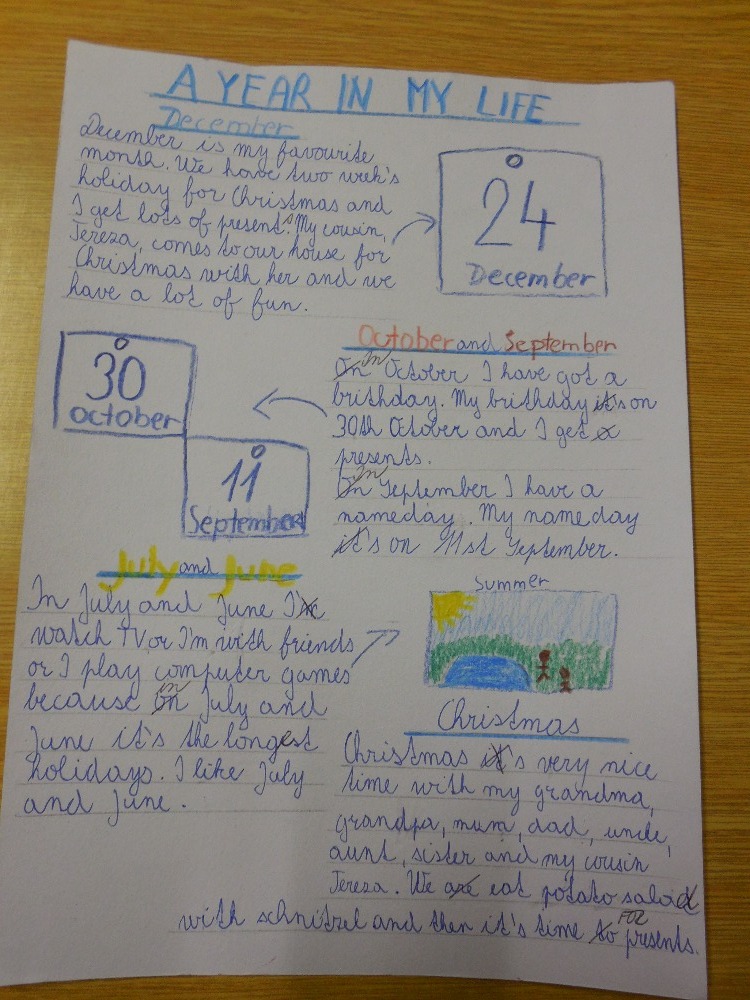 A YEAR IN MY LIFE
December
December is my favourite
month. We have two week's
holiday for Christmas and
I get lots of presents. My cousin,
Tereza, comes to our house for
Christmas with her and we
have a lot of fun.
24
December
30
October
11
September
October and September
In October I have got a
brithday. My brithday it's on
30th October and I get a
presents.
In September I have a
nameday. My nameday
it's on 11st September.
July and June
In July and June I'm
watch TV, or I'm with friends
or I play computer games
because in July and
June it's the longest
holidays. I like July
and June.
summer
Christmas
Christmas it's very nice
time with my grandma,
grandpa, mum, dad, uncle,
aunt, sister and my cousin
Tereza. We are eat potato salad
with schnitzel and then it's time to FOR presents.